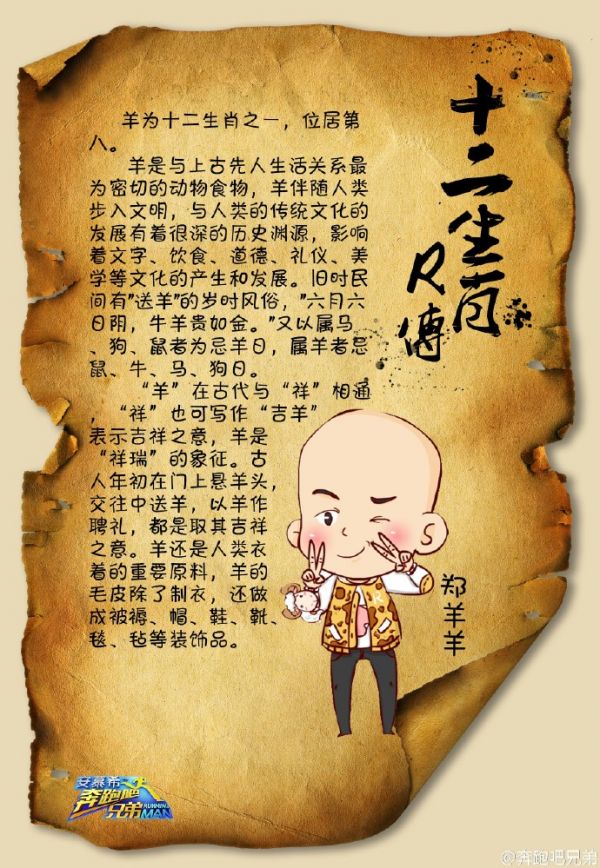 十二生肖
R傳
羊为十二生肖之一，位居第
八。
羊是与上古先人生活关系最
为密切的动物食物，羊伴随人类
步入文明，与人类的传统文化的
发展有着很深的历史渊源，影响
着文字、饮食、道德、礼仪、美
学等文化的产生和发展。旧时民
间有"送羊"的岁时风俗，"六月六
日阴，牛羊贵如金。"又以属马
、狗、鼠者为忌羊日，属羊者忌
鼠、牛、马、狗日。
“羊”在古代与“祥”相通
，“祥”也可写作“吉羊”
表示吉祥之意，羊是
“祥瑞”的象征。古
人年初在门上悬羊头，
交往中送羊，以羊作
聘礼，都是取其吉祥
之意。羊还是人类衣
着的重要原料，羊的
毛皮除了制衣，还做
成被褥、帽、鞋、靴、
毯、毡等装饰品。
郑羊羊
安慕希
奔跑吧
兄弟
RUNNING
MAN
@奔跑吧兄弟